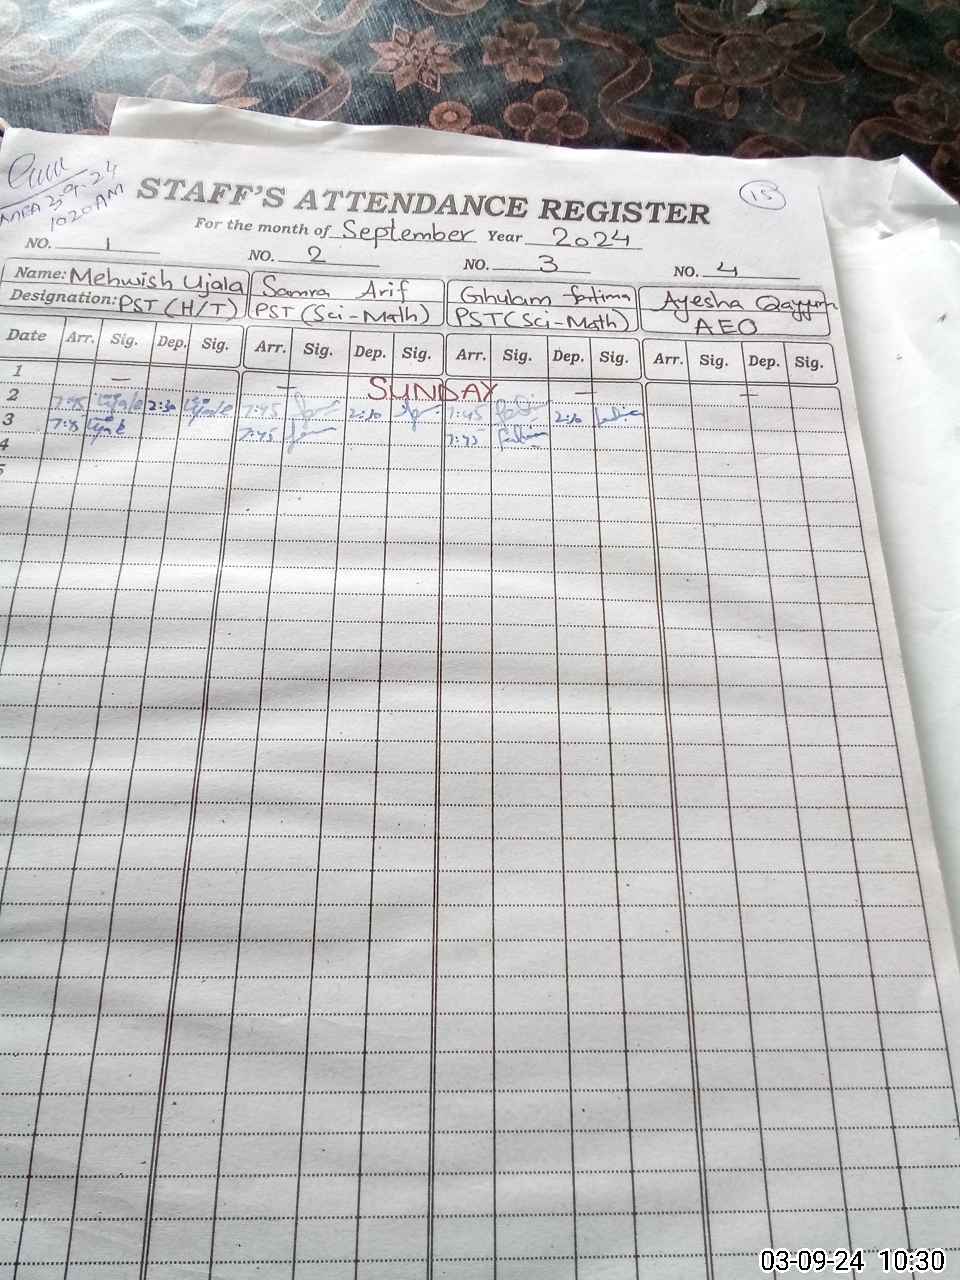 MEA 3-09-24
10:20 AM
15
STAFF'S ATTENDANCE REGISTER
For the month of September Year 2024
NO. 1 NO. 2 NO. 3 NO. 4
Name: Mehwish Ujala Samra Arif Ghulam fatima Ayesha Qayyum
Designation: PST (H/T) PST (Sci-Math) PST (Sci-Math) AEO
Date Arr. Sig. Dep. Sig. Arr. Sig. Dep. Sig. Arr. Sig. Dep. Sig. Arr. Sig. Dep. Sig.
1 — — SUNDAY — —
2 7:45 Ujala 2:30 Ujala 7:45 2:30 7:45 2:30
3 7:45 Ujala 7:45 7:45
4
5
03-09-24 10:30